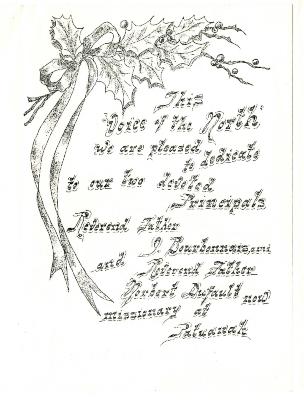 This
"Voice of the North"
we are pleased
to dedicate
to our two devoted
Principals
Reverend Father
J. Bourbonnais, o.m.i
and Reverend Father
Norbert Dufault now
missionary at
Patuanak